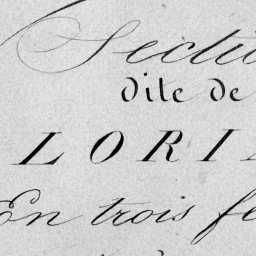 Sectio
dite de
LORI
En trois fe